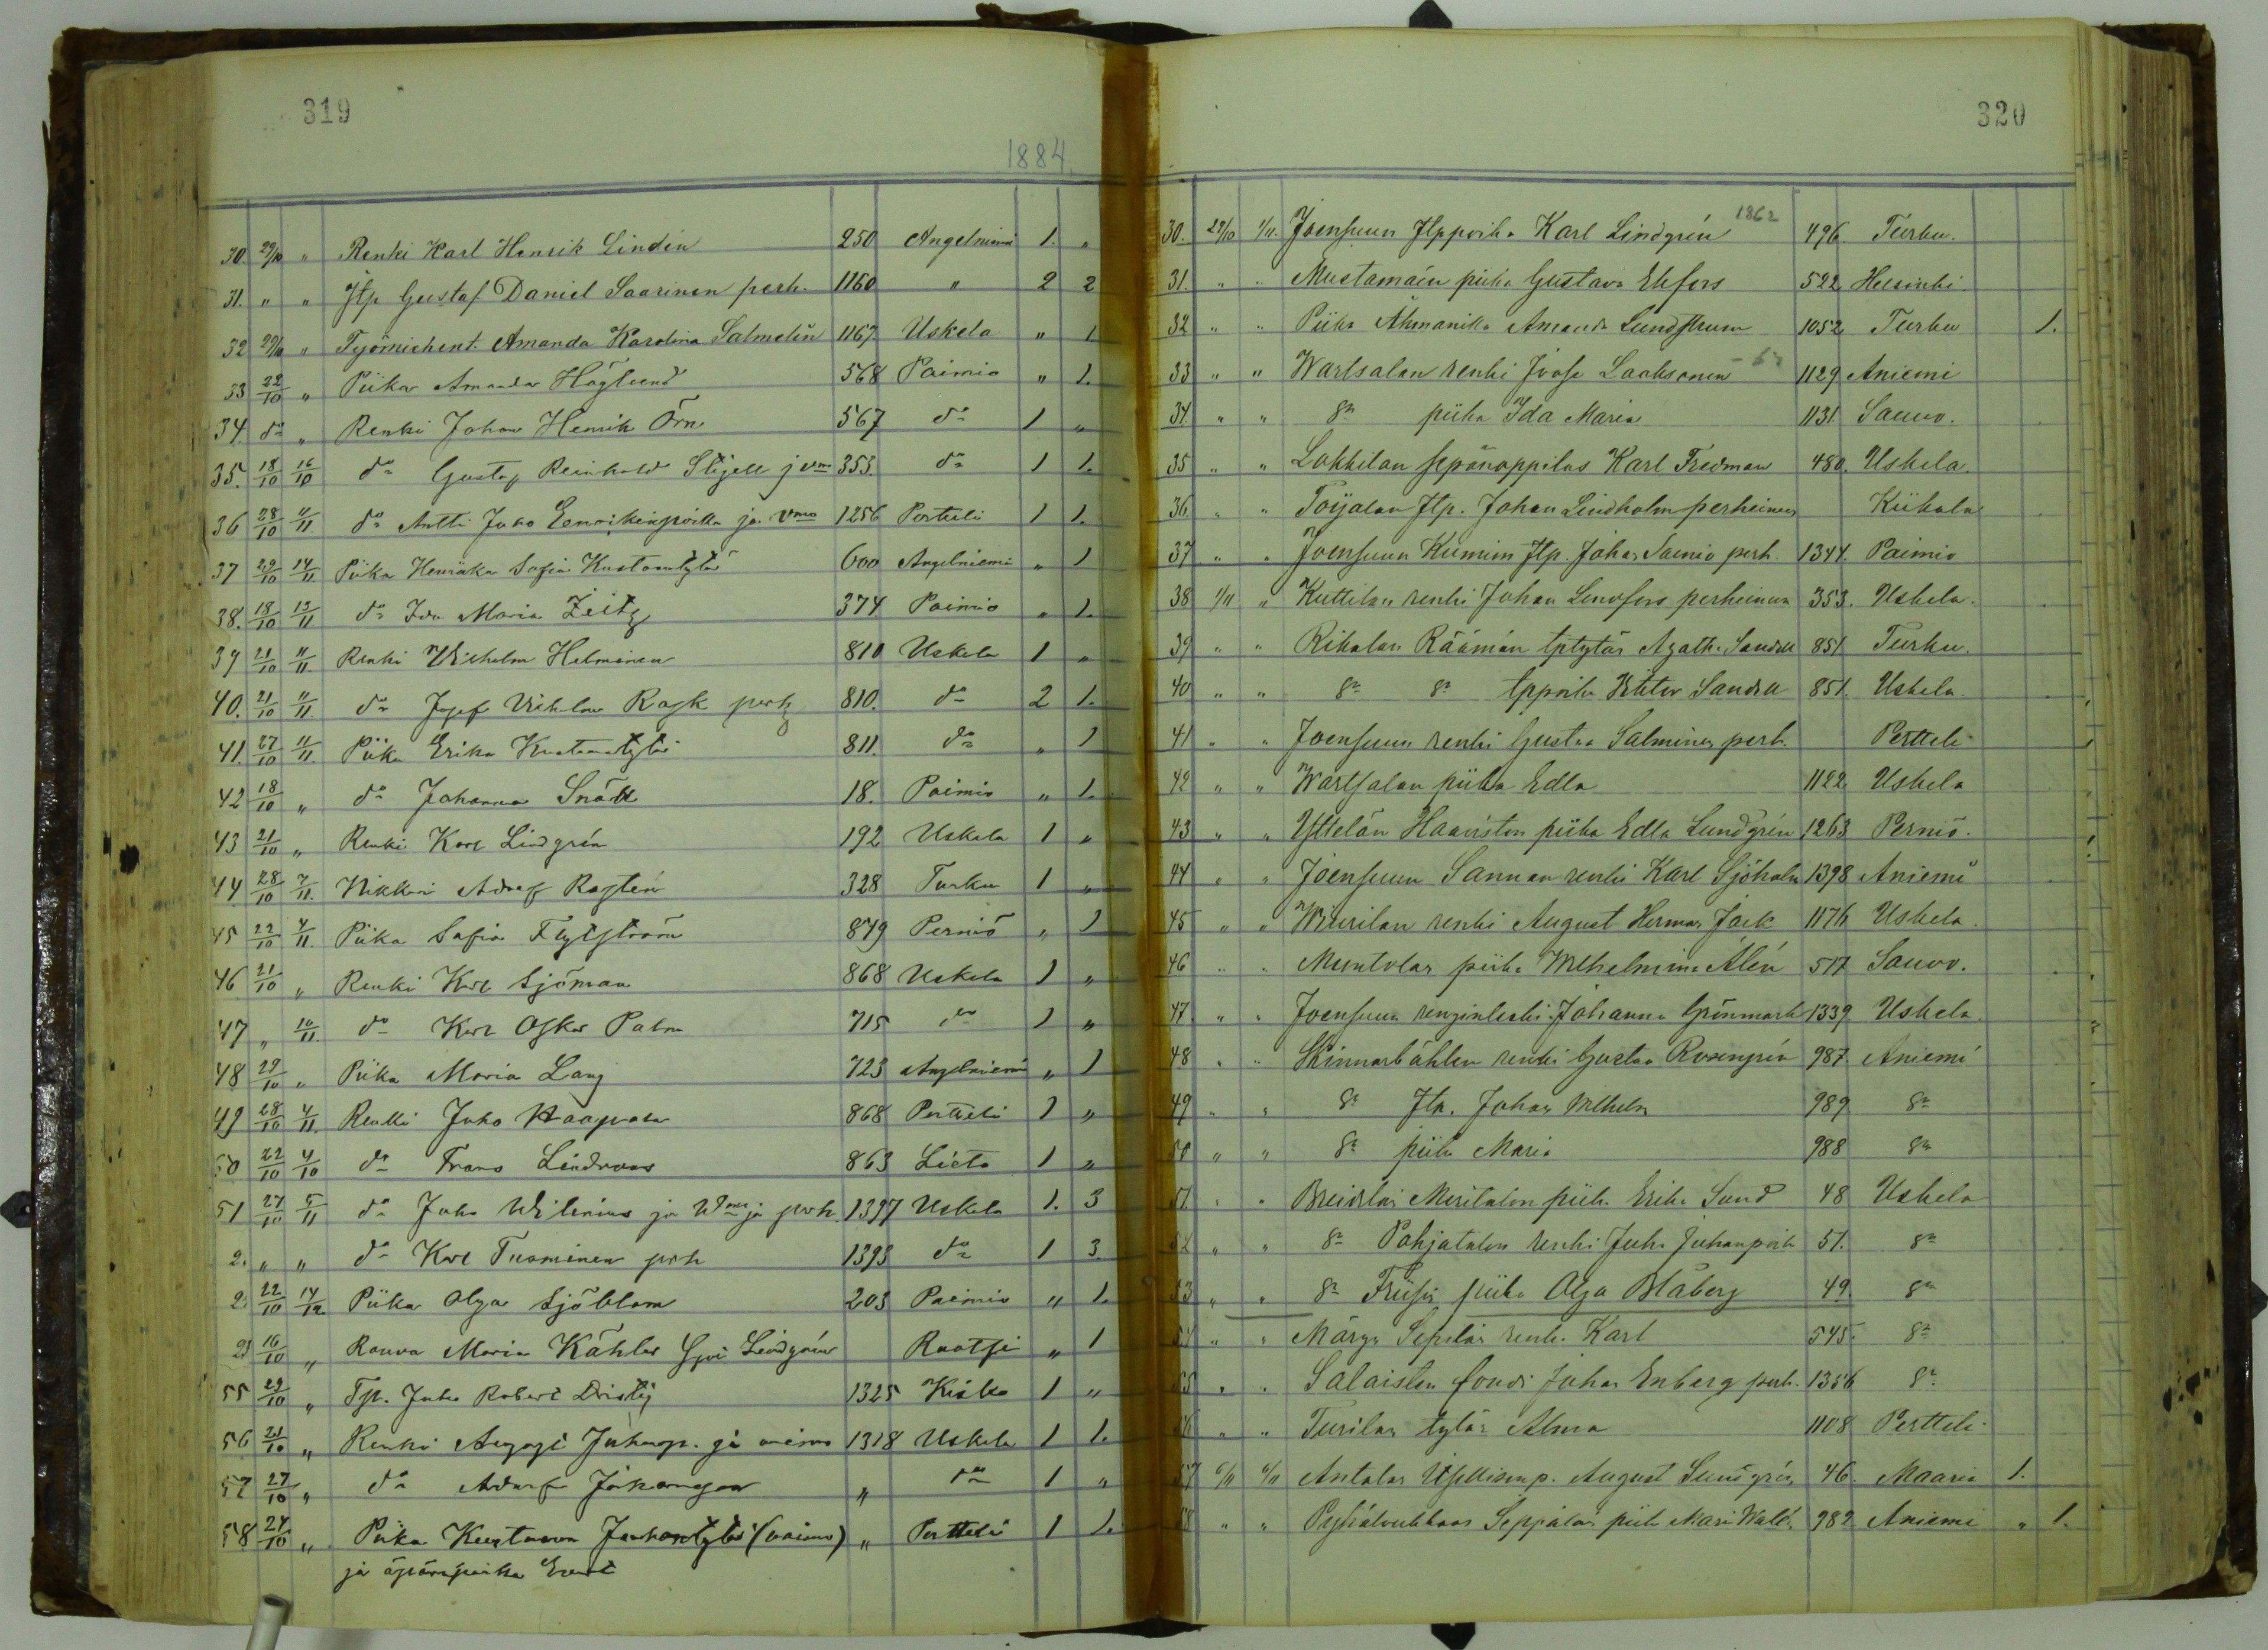 319
1884.
30. 29/10 " Renki Karl Henrik Lindén 250 Angelniemi 1. "
31. " " Itp Gustaf Daniel Saarinen perh. 1160 " 2 2
32 29/10 " Amanda Karolina Salmelin 1167. Uskela " 1
33 22/10 " Piika Amanda Höglund 568 Paimio " 1.
34. do " Renki Johan Henrik Örn 567 do 1 "
35. 18/10 16/10 do Gustaf Reinhold Stjell j vmo 353. do 1 1.
36 28/10 11/11. do Antti Juho ja vmo 1256 Pertteli 1 1.
37 29/10 14/11. Piika Henrika Sofia Kustaantytär 600 Angelniemi " 1
38. 18/10 13/11. do Ida Maria Zeitz 374. Paimio " 1.
39 21/10 11/11. Renki Vilhelm Helminen 810 Uskela 1 "
40. 21/10 11/11. do Josef Vihelm Rask perh 810. do 2 1.
41. 27/10 11/11. Piika Erika Kustaantytär 811. do " 1
42 18/10 " do Johanna Snäll 18. Paimio " 1.
43 21/10 " Renki Karl Lindgrén 192 Uskela 1 "
44 28/10 7/11. Nikkari Adolf Ragtén 328 Turku 1 "
45 22/10 4/11. Piika Sofia Flytström 849 Perniö " 1
46 21/10 " Renki Karl Sjöman 868 Uskela 1 "
47 " 10/11. do Karl Oskar Palm 715 do 1 "
48 29/10 " Piika Maria Lang 723 Angelniemi " 1
49 28/10 4/11. Renki Juho Haapala 868 Pertteli 1 "
50 22/10 4/10 do Frans Lindroos 863 Lieto 1 "
51 27/10 5/11 do Juho Wilenius ja Wmo ja perh. 1397 Uskela 1. 3
2. " " do Karl Tuominen perh 1393 do 1 3.
2. 22/10 14/12 Piika Olga Sjöblom 203 Paimio " 1.
16/10 " Rouva Maria Kähler Lindgrén Ruotsi " 1
55 29/10 " Tp. Juho Robert 1325 Kisko 1 "
56 21/10 " Renki August Juhanp. ja vaimo 1318 Uskela 1 1.
57 27/10 " do Adolf Johansson " do 1 "
58. 24/10 " Piika Kustaava Juhantytär (vaimo) " Pertteli 1 1.
ja äpäräpoika
320
30. 29/10 1/11. Joensuun Itppoika Karl Lindgrén 1862 496. Turku.
31. " " Mustamäen piika Gustava Ekfors 522 Helsinki
32 " " Piika Åhmanilla Amanda Lundstrum 1052 Turku 1.
33 " " Wartsalan renki Joose Laaksonen 1129 Aniemi
34. " " do piika Ida Maria 1131. Sauvo.
35 " " Lakkilan sepänoppilas Karl Fredman 480. Uskela.
36. " " Toijalan Itp. Johan Lindholm perheineen Kiikala
37 " " Joensuun Kumion Itp. Johan Sainio perh. 1344. Paimio
38 1/11 " Kuttilan renki Johan Lenfors perheineen 353. Uskela.
39 " " Rikalan Räämän tptytär Agatha Sandell 851. Turku.
40 " " do do tppoika Viktor Sandell 851. Uskela.
41 " " Joensuun renki Gustaa Salminen perh. Pertteli
42 " " Wartsalan piika Edla 1122. Uskela
43 " " Yttelän Haaviston piika Edla Lundgrén 1263 Perniö.
44 " " Joensuun Sannan renki Karl Sjöholm 1398 Aniemi
45 " " Wiurilan renki August Herman Jack 1176 Uskela.
46 " " Muntolan piika Wilhelmina Alén 517 Sauvo.
47. " " Joensuun renginleski Johanna Grönmark 1339. Uskela.
48 " " Skinnarbählen renki Gustaa Rosengrén 987. Aniemi
49 " " do Itp. Johan Wilhelm 989 do
50 " " do piika Maria 988 do
51. " " Meritalon piika Erika Sund 48 Uskela
52 " " do Pohjatalon renki Juho Juhanpoika 51. do
53 " " do piika Olga Blåberg 49. do
54 " " Märyn Sepilän renki Karl 545. do
55 " " Salaisten Johan Enberg perh. 1356 do
56 " " Turilan tytär Alma 1108 Pertteli
57 6/11 6/11 Antolan August Sundgrén 46. Maaria 1.
58 " " Seppälän piika Mari 982 Aniemi " 1.